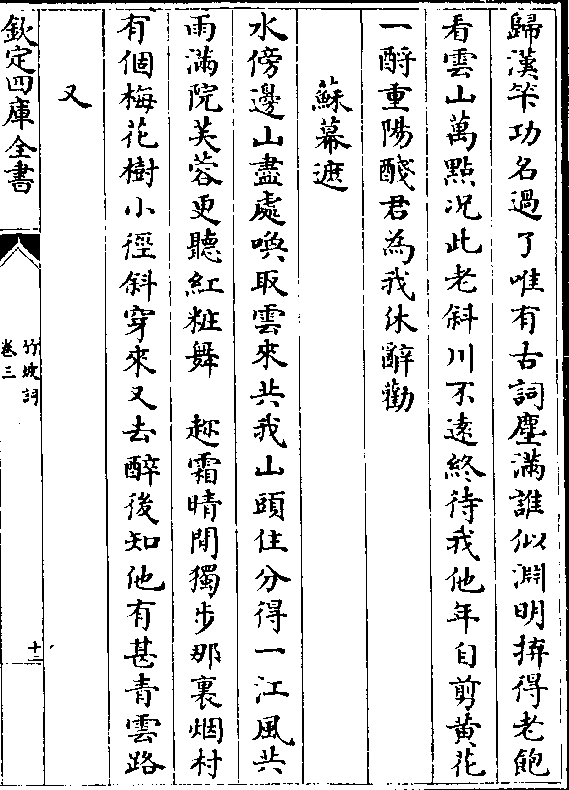 歸漢筞功名過了唯有古詞塵滿誰似淵明拚得老飽
看雲山萬點况此老斜川不逺終待我他年自剪黄花
一酹重陽醆君為我休辭勸
蘇幕遮
水傍邊山盡處喚取雲來共我山頭住分得一江風共
雨滿院芙蓉更聽紅粧舞 趂霜晴閒獨步那裏烟村
有個梅花樹小徑斜穿來又去醉後知他有甚青雲路
又
欽定四庫全書
竹坡詞
卷三
十二